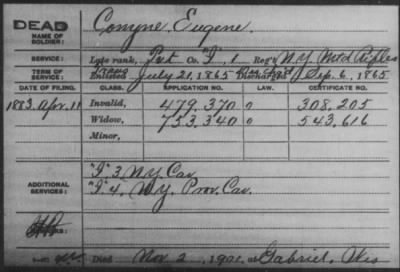 DEAD
NAME OF
SOLDIER:
Comyne Eugene.
SERVICE: Late rank, Pvt Co. "I", 1 Reg't N.Y. Mtd Rifles
TERM OF
SERVICE: July 21, 1865 Sep. 6, 1865
DATE OF FILING. CLASS. APPLICATION NO. LAW. CERTIFICATE NO.
1883. Apr. 11 Invalid, 479,370 0 308,205
Widow, 753,340 0 543,616
Minor,
ADDITIONAL
SERVICES:
"I" 3 N.Y. Cav
"I" 4, N.Y. Prov. Cav.
Died Nov 2, 1901, at Gabriel, Wis